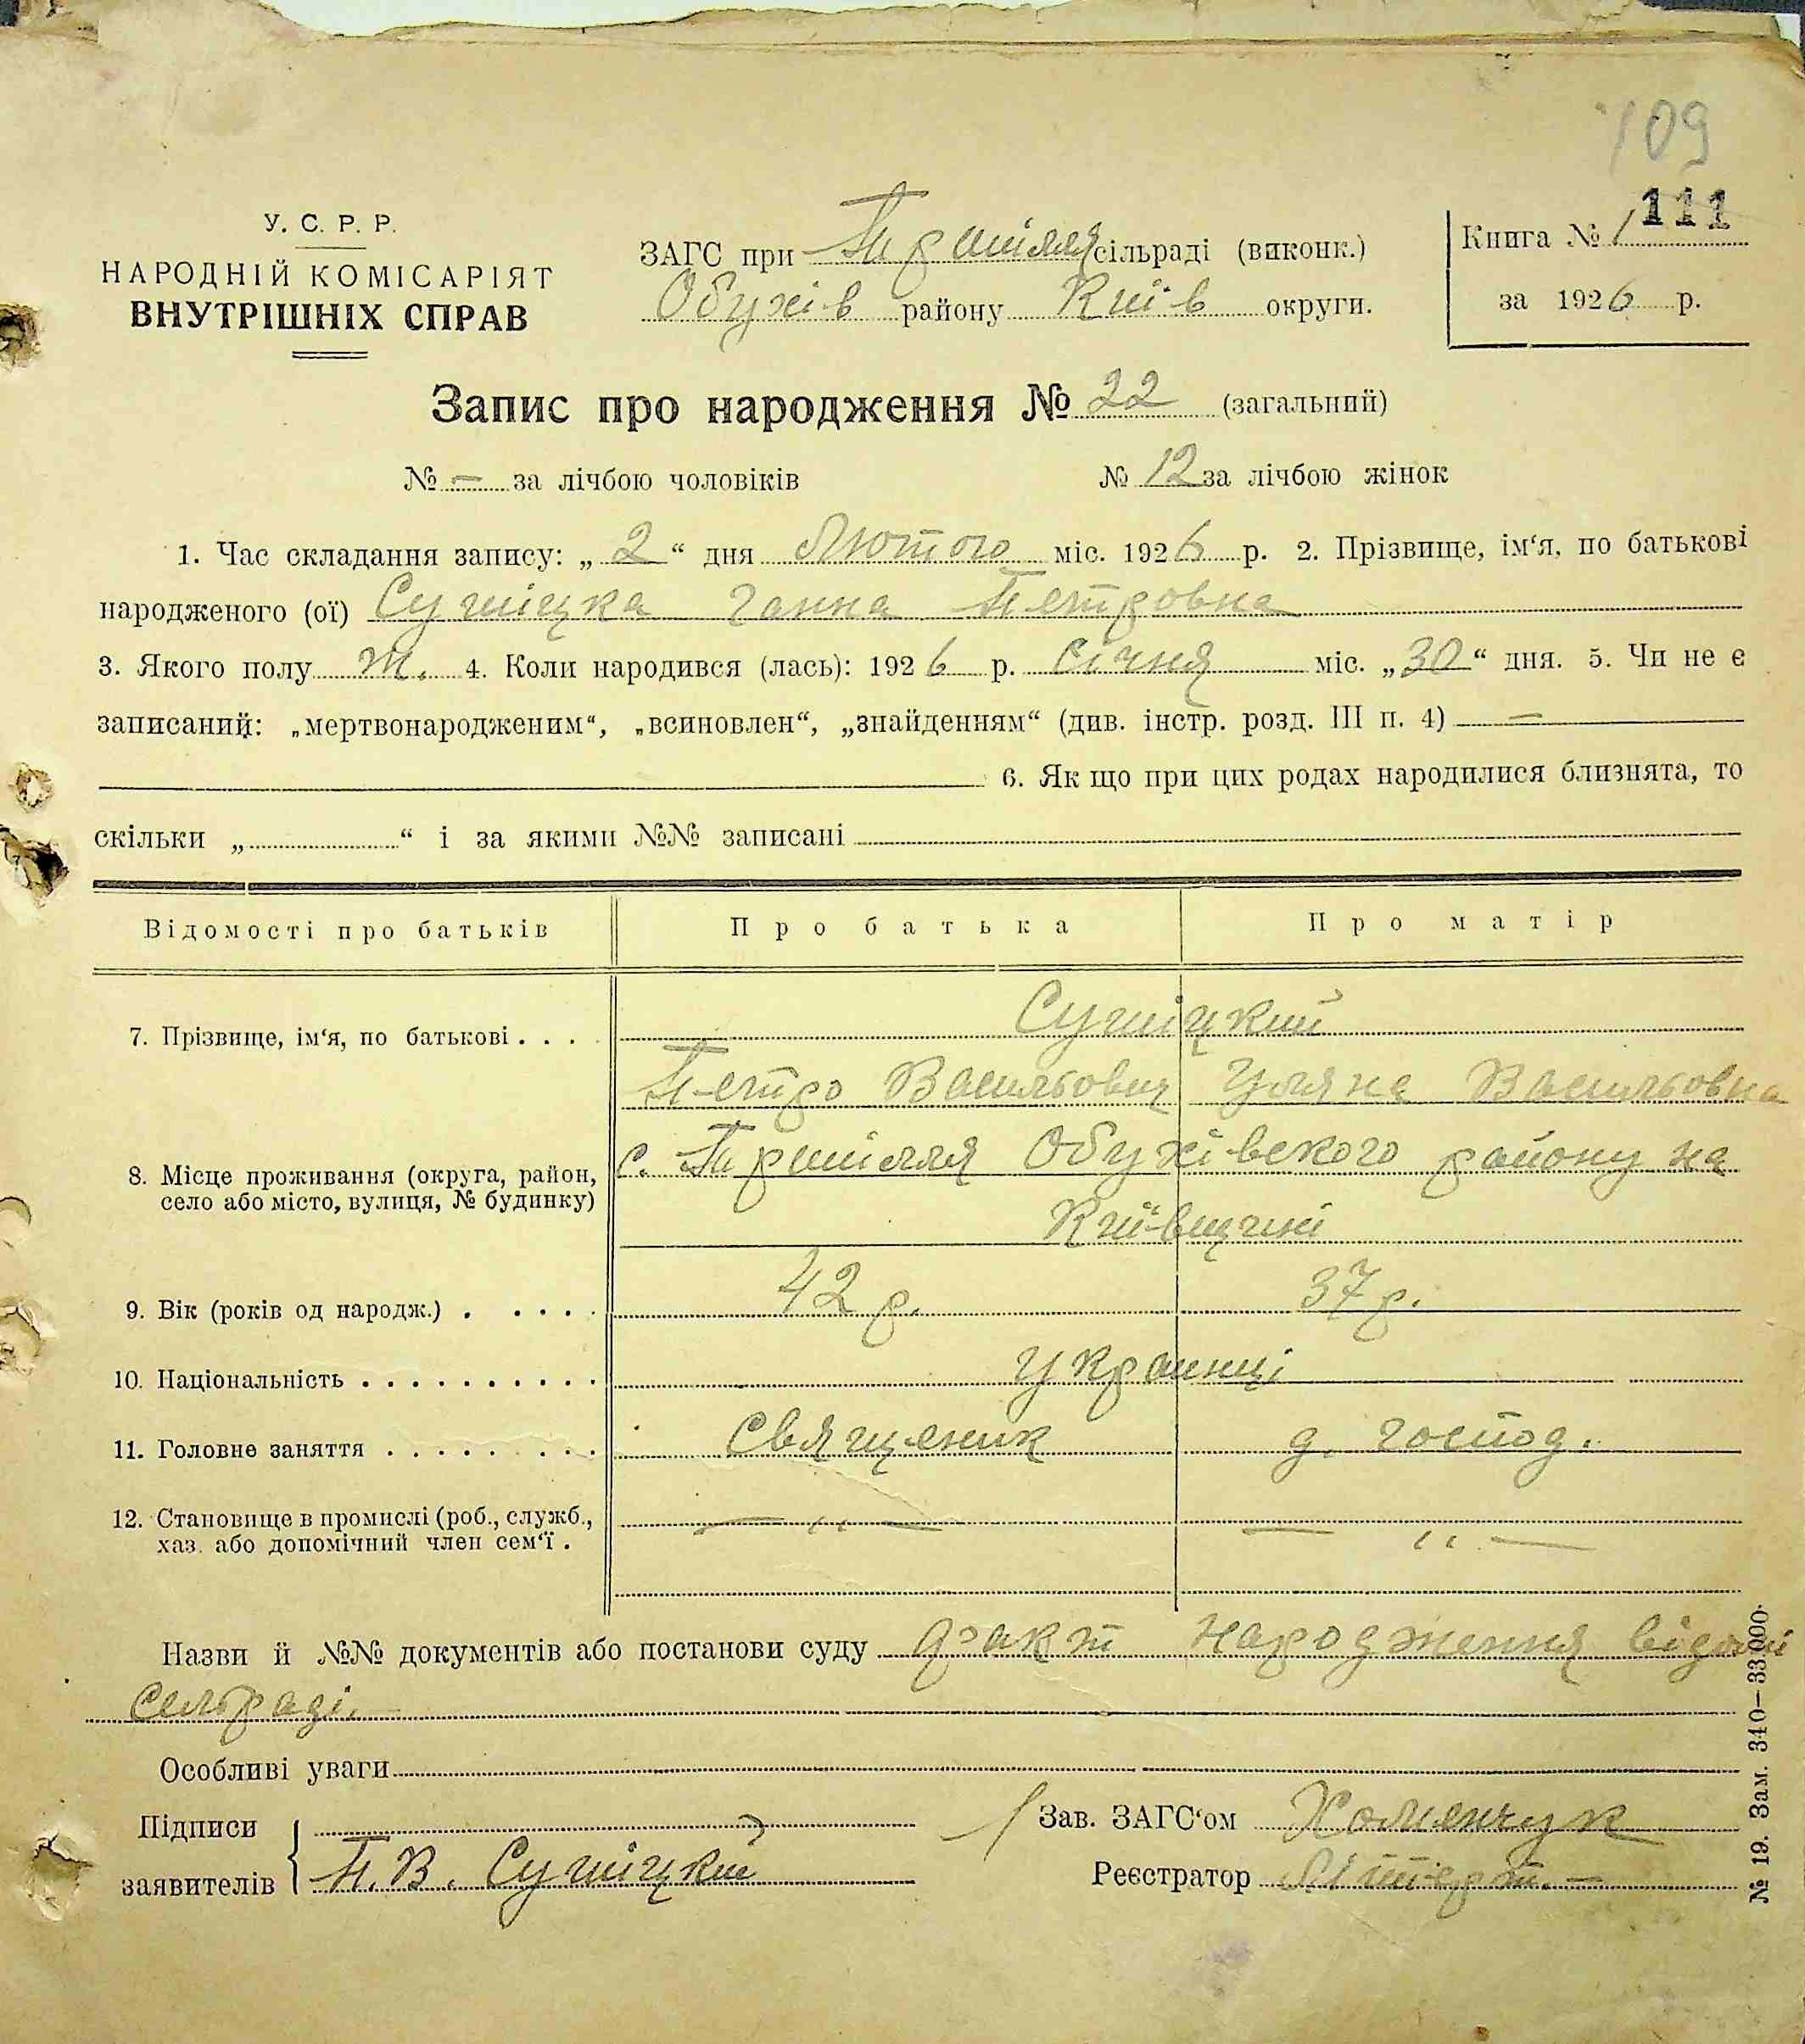 109
111
У. С. Р. Р.
НАРОДНІЙ КОМІСАРІЯТ
ВНУТРІШНІХ СПРАВ
ЗАГС при сільраді (виконк.)
Обухів району Київ округи.
Книга № 1
за 1926 р.
Запис про народження № 22 (загальний)
№ — за лічбою чоловіків № 12 за лічбою жінок
1. Час складання запису: „ 2 “ дня Лютого міс. 1926 р. 2. Прізвище, ім‘я, по батькові
народженого (ої) Сушіцка Ганна Петровна
3. Якого полу ж. 4. Коли народився (лась): 1926 р. січня міс. „30“ дня. 5. Чи не є
записаний: „мертвонародженим“, „всиновлен“, „знайденням“ (див. інстр. розд. III п. 4) —
6. Як що при цих родах народилися близнята, то
скільки „ “ і за якими №№ записані
Відомості про батьків Про батька Про матір
7. Прізвище, ім‘я, по батькові . . . . Сушіцкий
Петро Васильович Уляна Васильовна
8. Місце проживання (округа, район, село або місто, вулиця, № будинку) с. Обухівского району на
Київщині
9. Вік (років од народж.) . . . . . 42 р. 37 р.
10. Національність . . . . . . . . . . Українці
11. Головне заняття . . . . . . . . . Священик д. господ.
12. Становище в промислі (роб., служб., хаз. або допомічний член сем‘ї . — „ — — „ —
Назви й №№ документів або постанови суду факт народження відомі
сельраді.—
Особливі уваги
Підписи заявителів П. В. Сушіцкий
Зав. ЗАГС‘ом Хоменчук
Реєстратор
№ 19. Зам. 340—33.000.